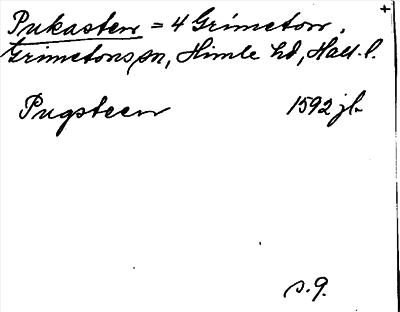 +
Pukasten = 4 Grimeton,
Grimetons sn, Himle hd, Hall. l.
Pugsteen 1592 jb.
s. 9.